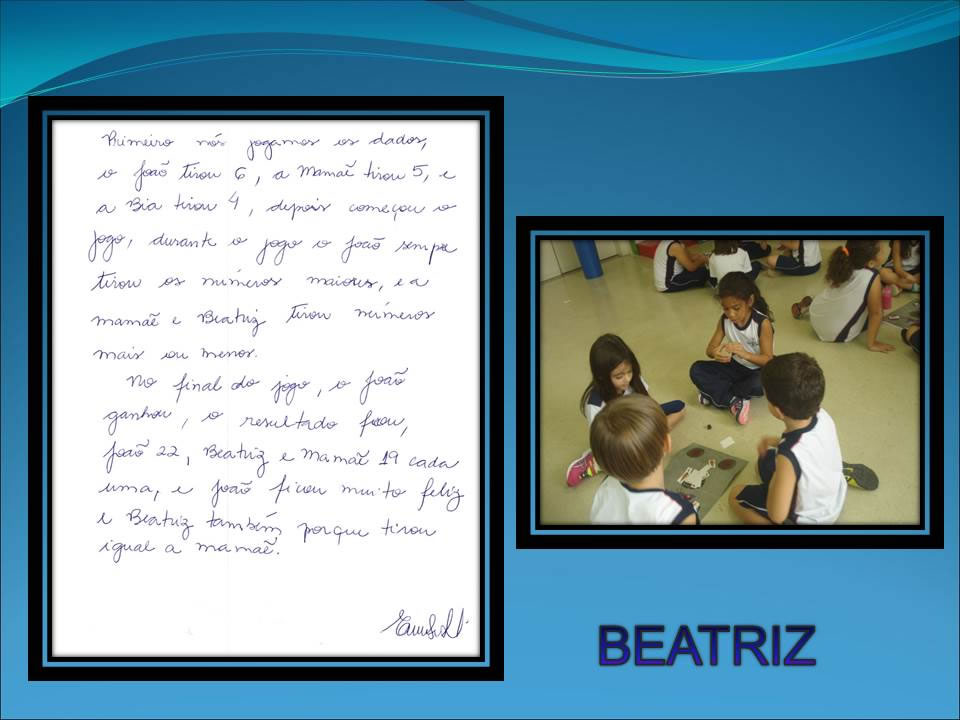 Primeiro nós jogamos os dados,
o João tirou 6, a Mamãe tirou 5, e
a Bia tirou 4, depois começou o
jogo, durante o jogo o João sempre
tirou os números maiores, e a
mamãe e Beatriz tirou números
mais ou menos.
No final do jogo, o João
ganhou, o resultado ficou,
João 22, Beatriz e Mamãe 19 cada
uma, e João ficou muito feliz
e Beatriz também, porque tirou
igual a mamãe.
BEATRIZ